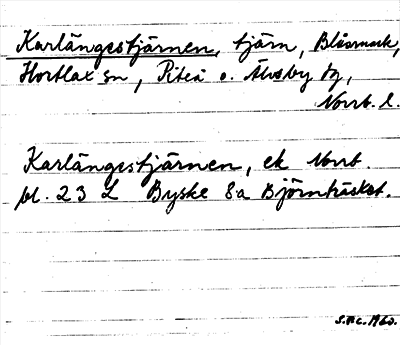 Karlängestjärnen, tjärn, Blåsmark,
Hortlax sn, Piteå o. Älvsby tg,
Norrb. l.
Karlängestjärnen, ek Norrb.
bl. 23 L Byske 8a Björnträsket.
1960.